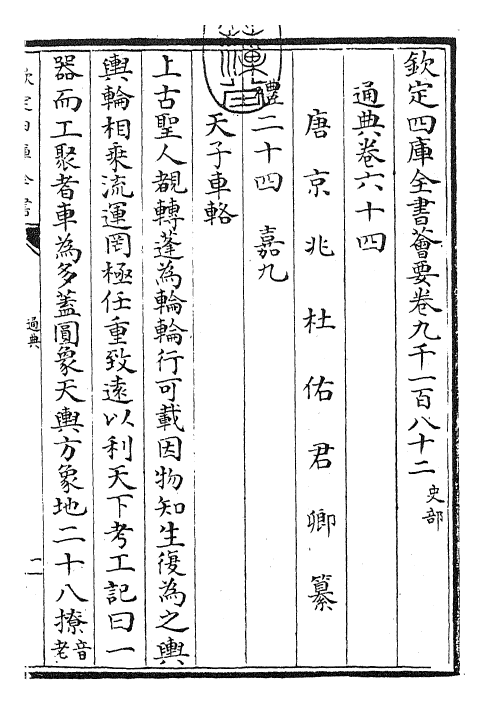 欽定四庫全書薈要卷九千一百八十二 史部
通典卷六十四
唐京兆杜佑君卿纂
禮二十四 嘉九
天子車輅
上古聖人覩轉蓬為輪輪行可載因物知生復為之輿
輿輪相乗流運罔極任重致遠以利天下考工記曰一
器而工聚者車為多蓋圓象天輿方象地二十八橑音老
欽定四庫全書
通典